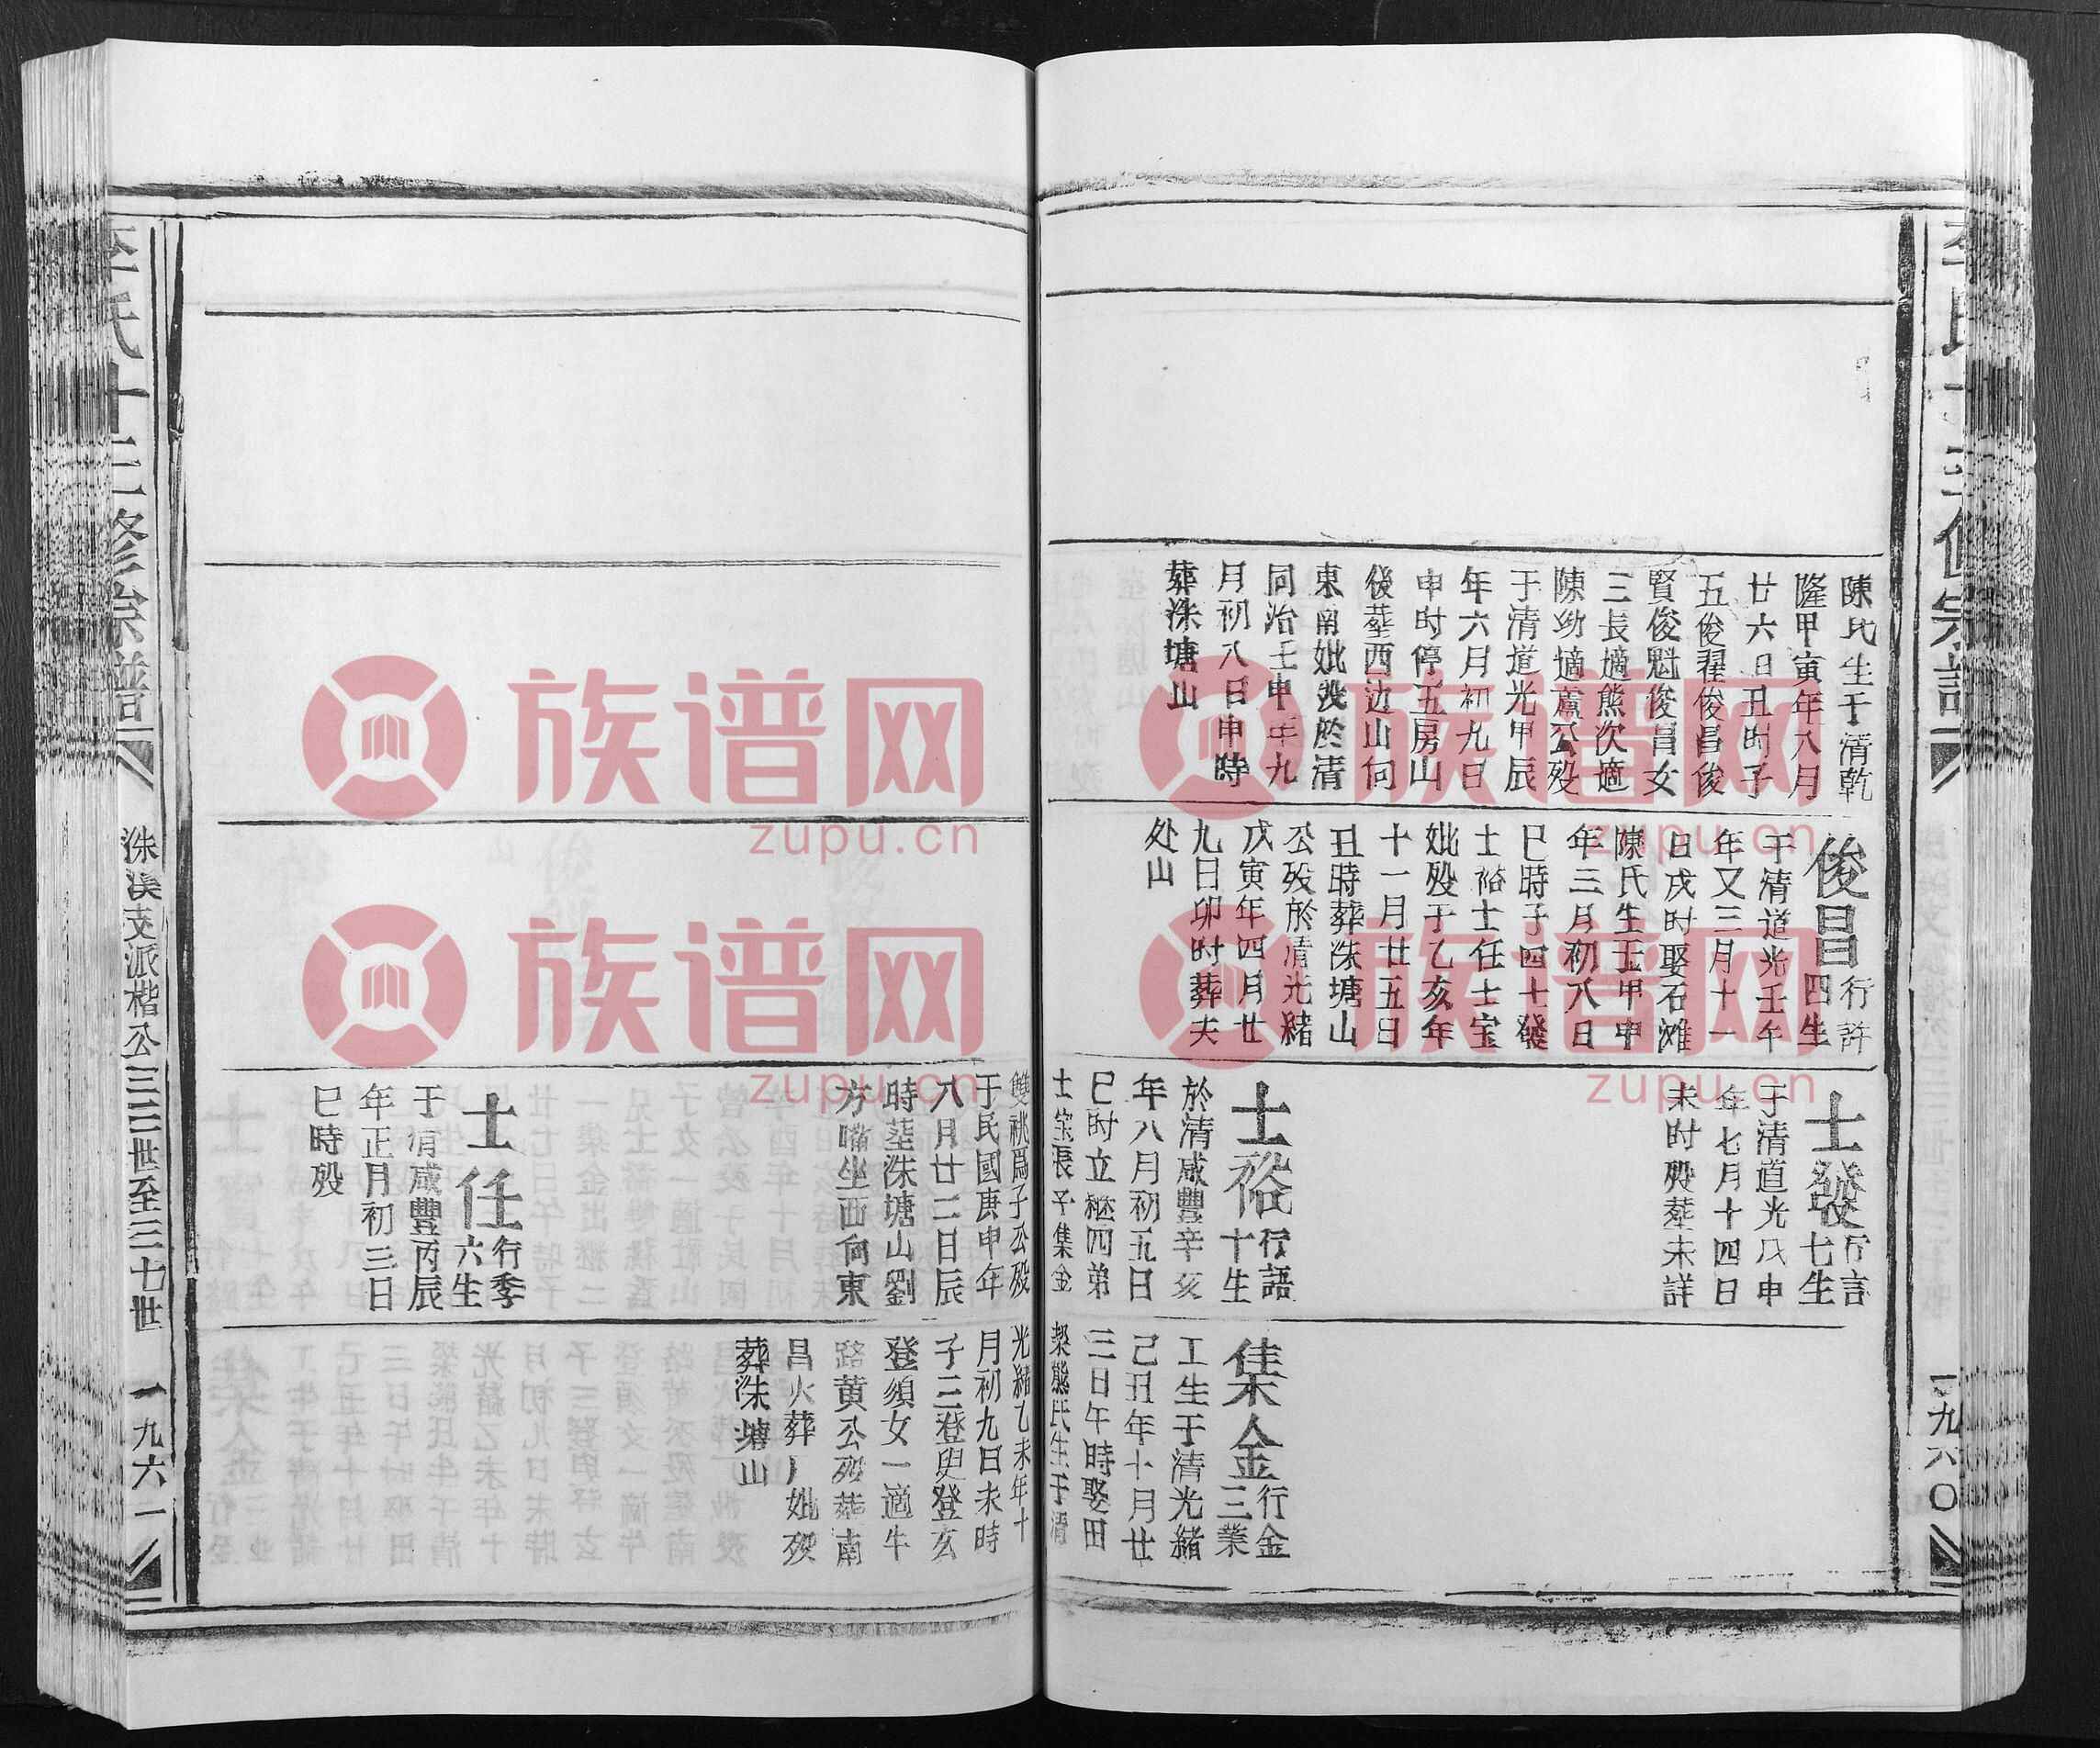 陳氏生于清乾
隆甲寅年八月
廿六日丑时子
五俊翟俊昌俊
賢俊魁俊昌女
三長適熊次適
陳幼適蘆公殁
于清道光甲辰
年六月初九日
申时停五房山
後塟西边山向
東南妣殁於清
同治壬申年九
月初八日申時
葬洙塘山
俊昌
行許
四生
于清道光壬午
年又三月十一
日戌时娶石滩
陳氏生壬甲申
年三月初八日
巳時子四士發
士裕士任士宝
妣殁于乙亥年
十一月廿五日
丑時葬洙塘山
公殁於清光緒
戊寅年四月廿
九日卯时葬夫
处山
士發
行言
七生
于清道光戊申
年七月十四日
未时殁塟未詳
士裕
行語
十生
於清咸豐辛亥
年八月初五日
巳时立継四弟
士宝長子集金
集金
行金
三業
工生于清光緒
己丑年十月廿
三日午時娶田
築熊氏生于清
李氏十三修宗譜
一九六〇
雙祧爲子公殁
于民國庚申年
八月廿二日辰
時塟洙塘山劉
方嘴坐西向東
光緒乙未年十
月初九日未時
子三登臾登亥
登須女一適牛
路黄公殁葬南
昌火葬厂妣殁
葬洙塘山
士任
行季
六生
于清咸豐丙辰
年正月初三日
巳時殁
李氏十三修宗譜
洙溪支派楷公三三世至三七世
一九六一
族谱网
zupu.cn
族谱网
zupu.cn
族谱网
zupu.cn
族谱网
zupu.cn